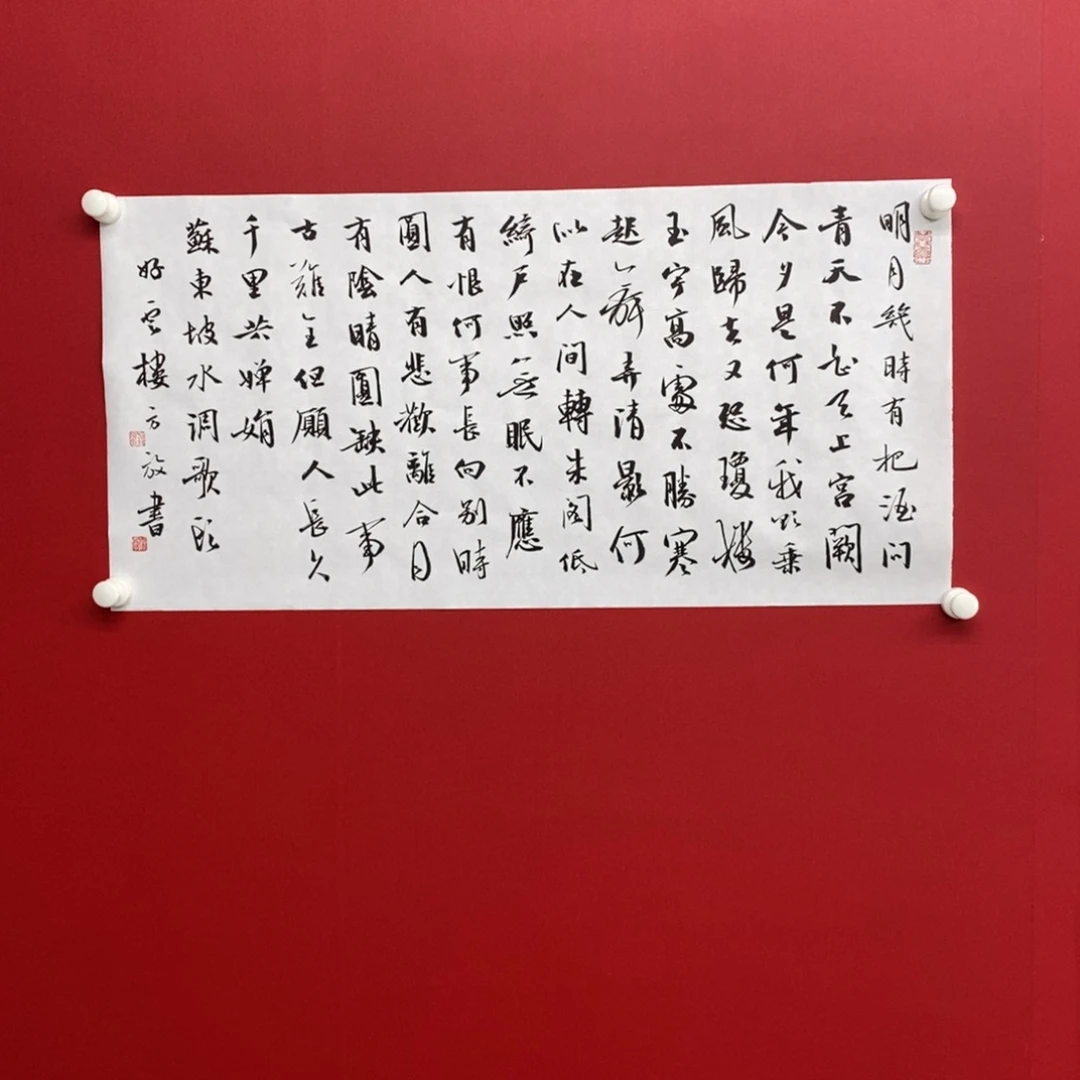 明月幾時有把酒問
青天不知天上宮闕
今夕是何年我欲乗
風歸去又恐瓊樓
玉宇高處不勝寒
起舞弄清影何
似在人間轉朱閣低
綺戶照無眠不應
有恨何事長向別時
圓人有悲歡離合月
有陰晴圓缺此事
古難全但願人長久
千里共嬋娟
蘇東坡水调歌頭
好雲樓方放書